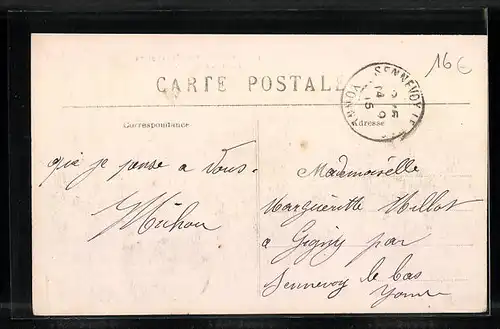 16€
CARTE POSTALE
SENNEVOY LE
YONNE
Correspondance
Adresse
que je pense a vous.
Mademoiselle
Margueritte Millot
a Gigny par
Sennevoy le bas
Yonne